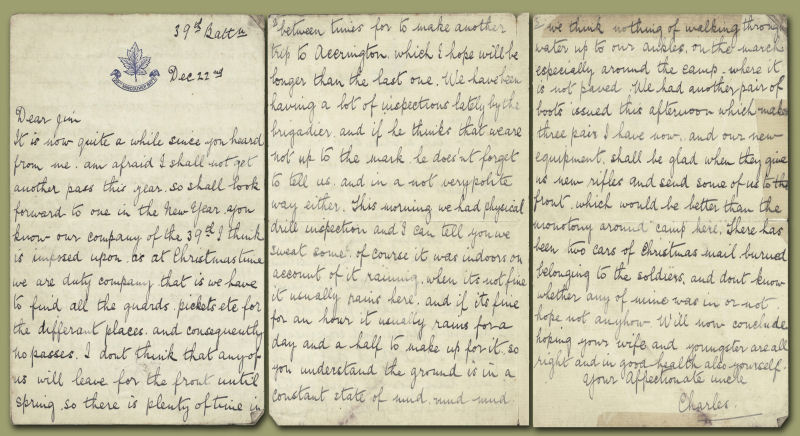 39th Battn
Dec 22nd
Dear Jim
It is now quite a while since you heard
from me. am afraid I shall not get
another pass this year. so shall look
forward to one in the New Year. you
know our company of the 39th I think
is imposed upon. as at Christmas time
we are duty company. that is we have
to find all the guards. pickets etc for
the differant places. and consequently
no passes. I dont think that any of
us will leave for the front until
spring. so there is plenty of time in
2
between times for to make another
trip to Accrington. which I hope will be
longer than the last one. We have been
having a lot of inspections lately by the
brigadier. and if he thinks that we are
not up to the mark. he does'nt forget
to tell us. and in a not very polite
way either. This morning we had physical
drill inspection and I can tell you we
sweat some. of course it was indoors on
account of it raining. when its not fine
it usually rains here. and if its fine
for an hour it usually rains for a
day and a half to make up for it. so
you understand the ground is in a
constant state of mud. mud mud.
3
we think nothing of walking through
water up to our ankles. on the march
especially around the camp. where it
is not paved. We had another pair of
boots issued this afternoon which makes
three pair I have now. and our new
equipment. shall be glad when they give
us new rifles and send some of us to the
front. which would be better than the
monotony around camp here. There has
been two cars of Christmas mail burned
belonging to the soldiers. and dont know
whether any of mine was in or not.
hope not anyhow. Will now conclude
hoping your wife and youngster are all
right and in good health also yourself.
your affectionate uncle
Charles.